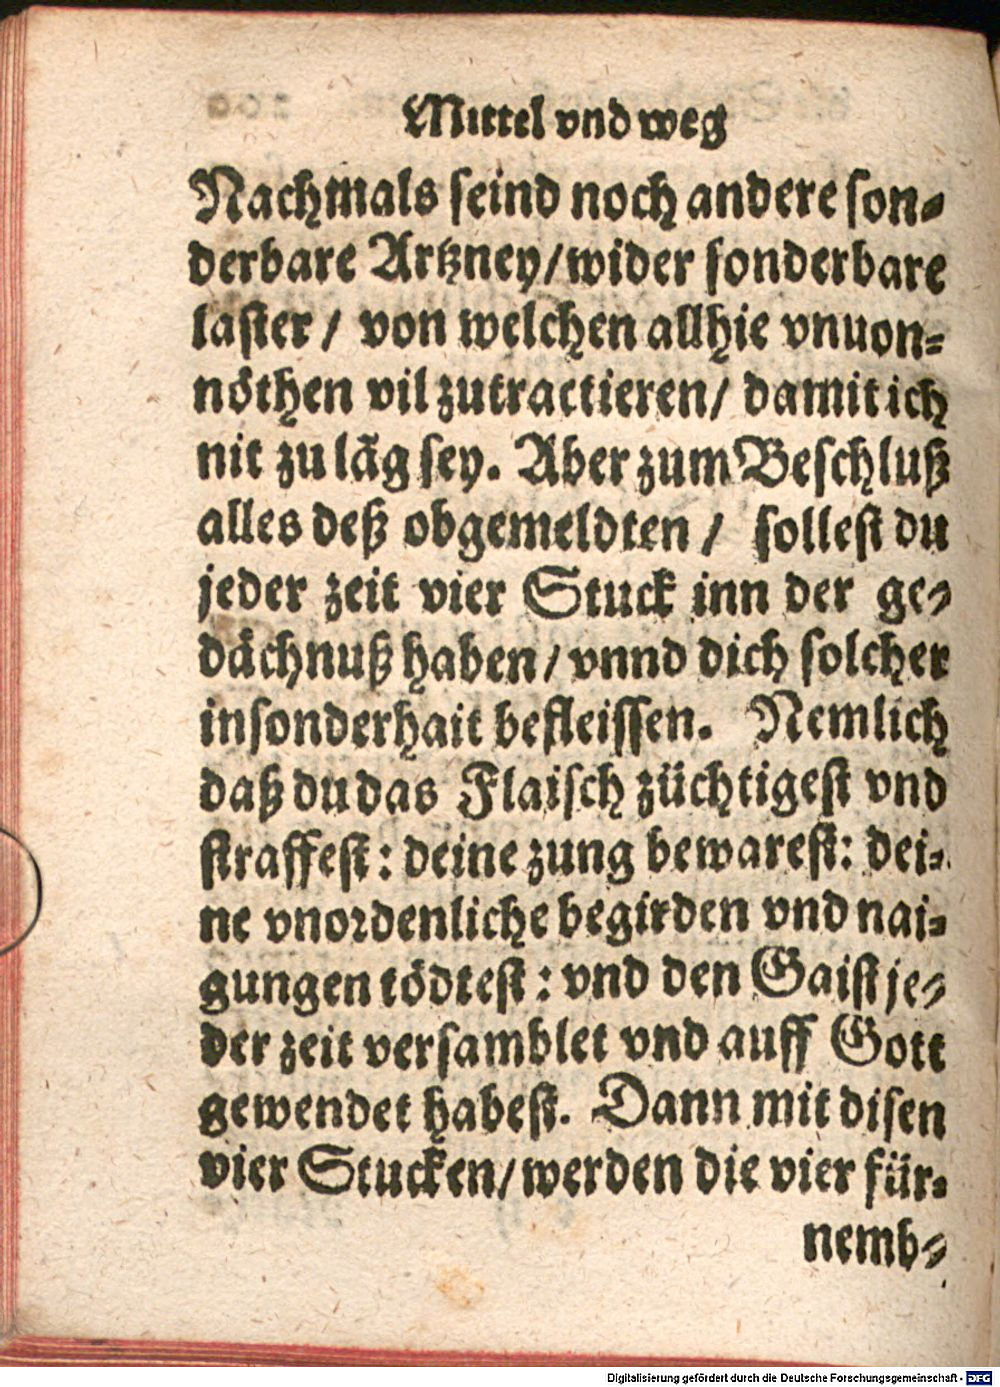 Mittel vnd weg
Nachmals seind noch andere son-
derbare Artzney/ wider sonderbare
laster/ von welchen allhie vnuon-
nöthen vil zutractieren/ damit ich
nit zu lãg sey. Aber zum Beschluß
alles deß obgemeldten/ sollest du
jeder zeit vier Stuck inn der ge-
dächnuß haben/ vnnd dich solcher
insonderhait befleissen. Nemlich
daß du das Flaisch züchtigest vnd
straffest: deine zung bewarest: dei-
ne vnordenliche begirden vnd nai-
gungen tödtest: vnd den Gaist je-
der zeit versamblet vnd auff Gott
gewendet habest. Dann mit disen
vier Stucken/ werden die vier für-
nemb-
Digitalisierung gefördert durch die Deutsche Forschungsgemeinschaft - DFG